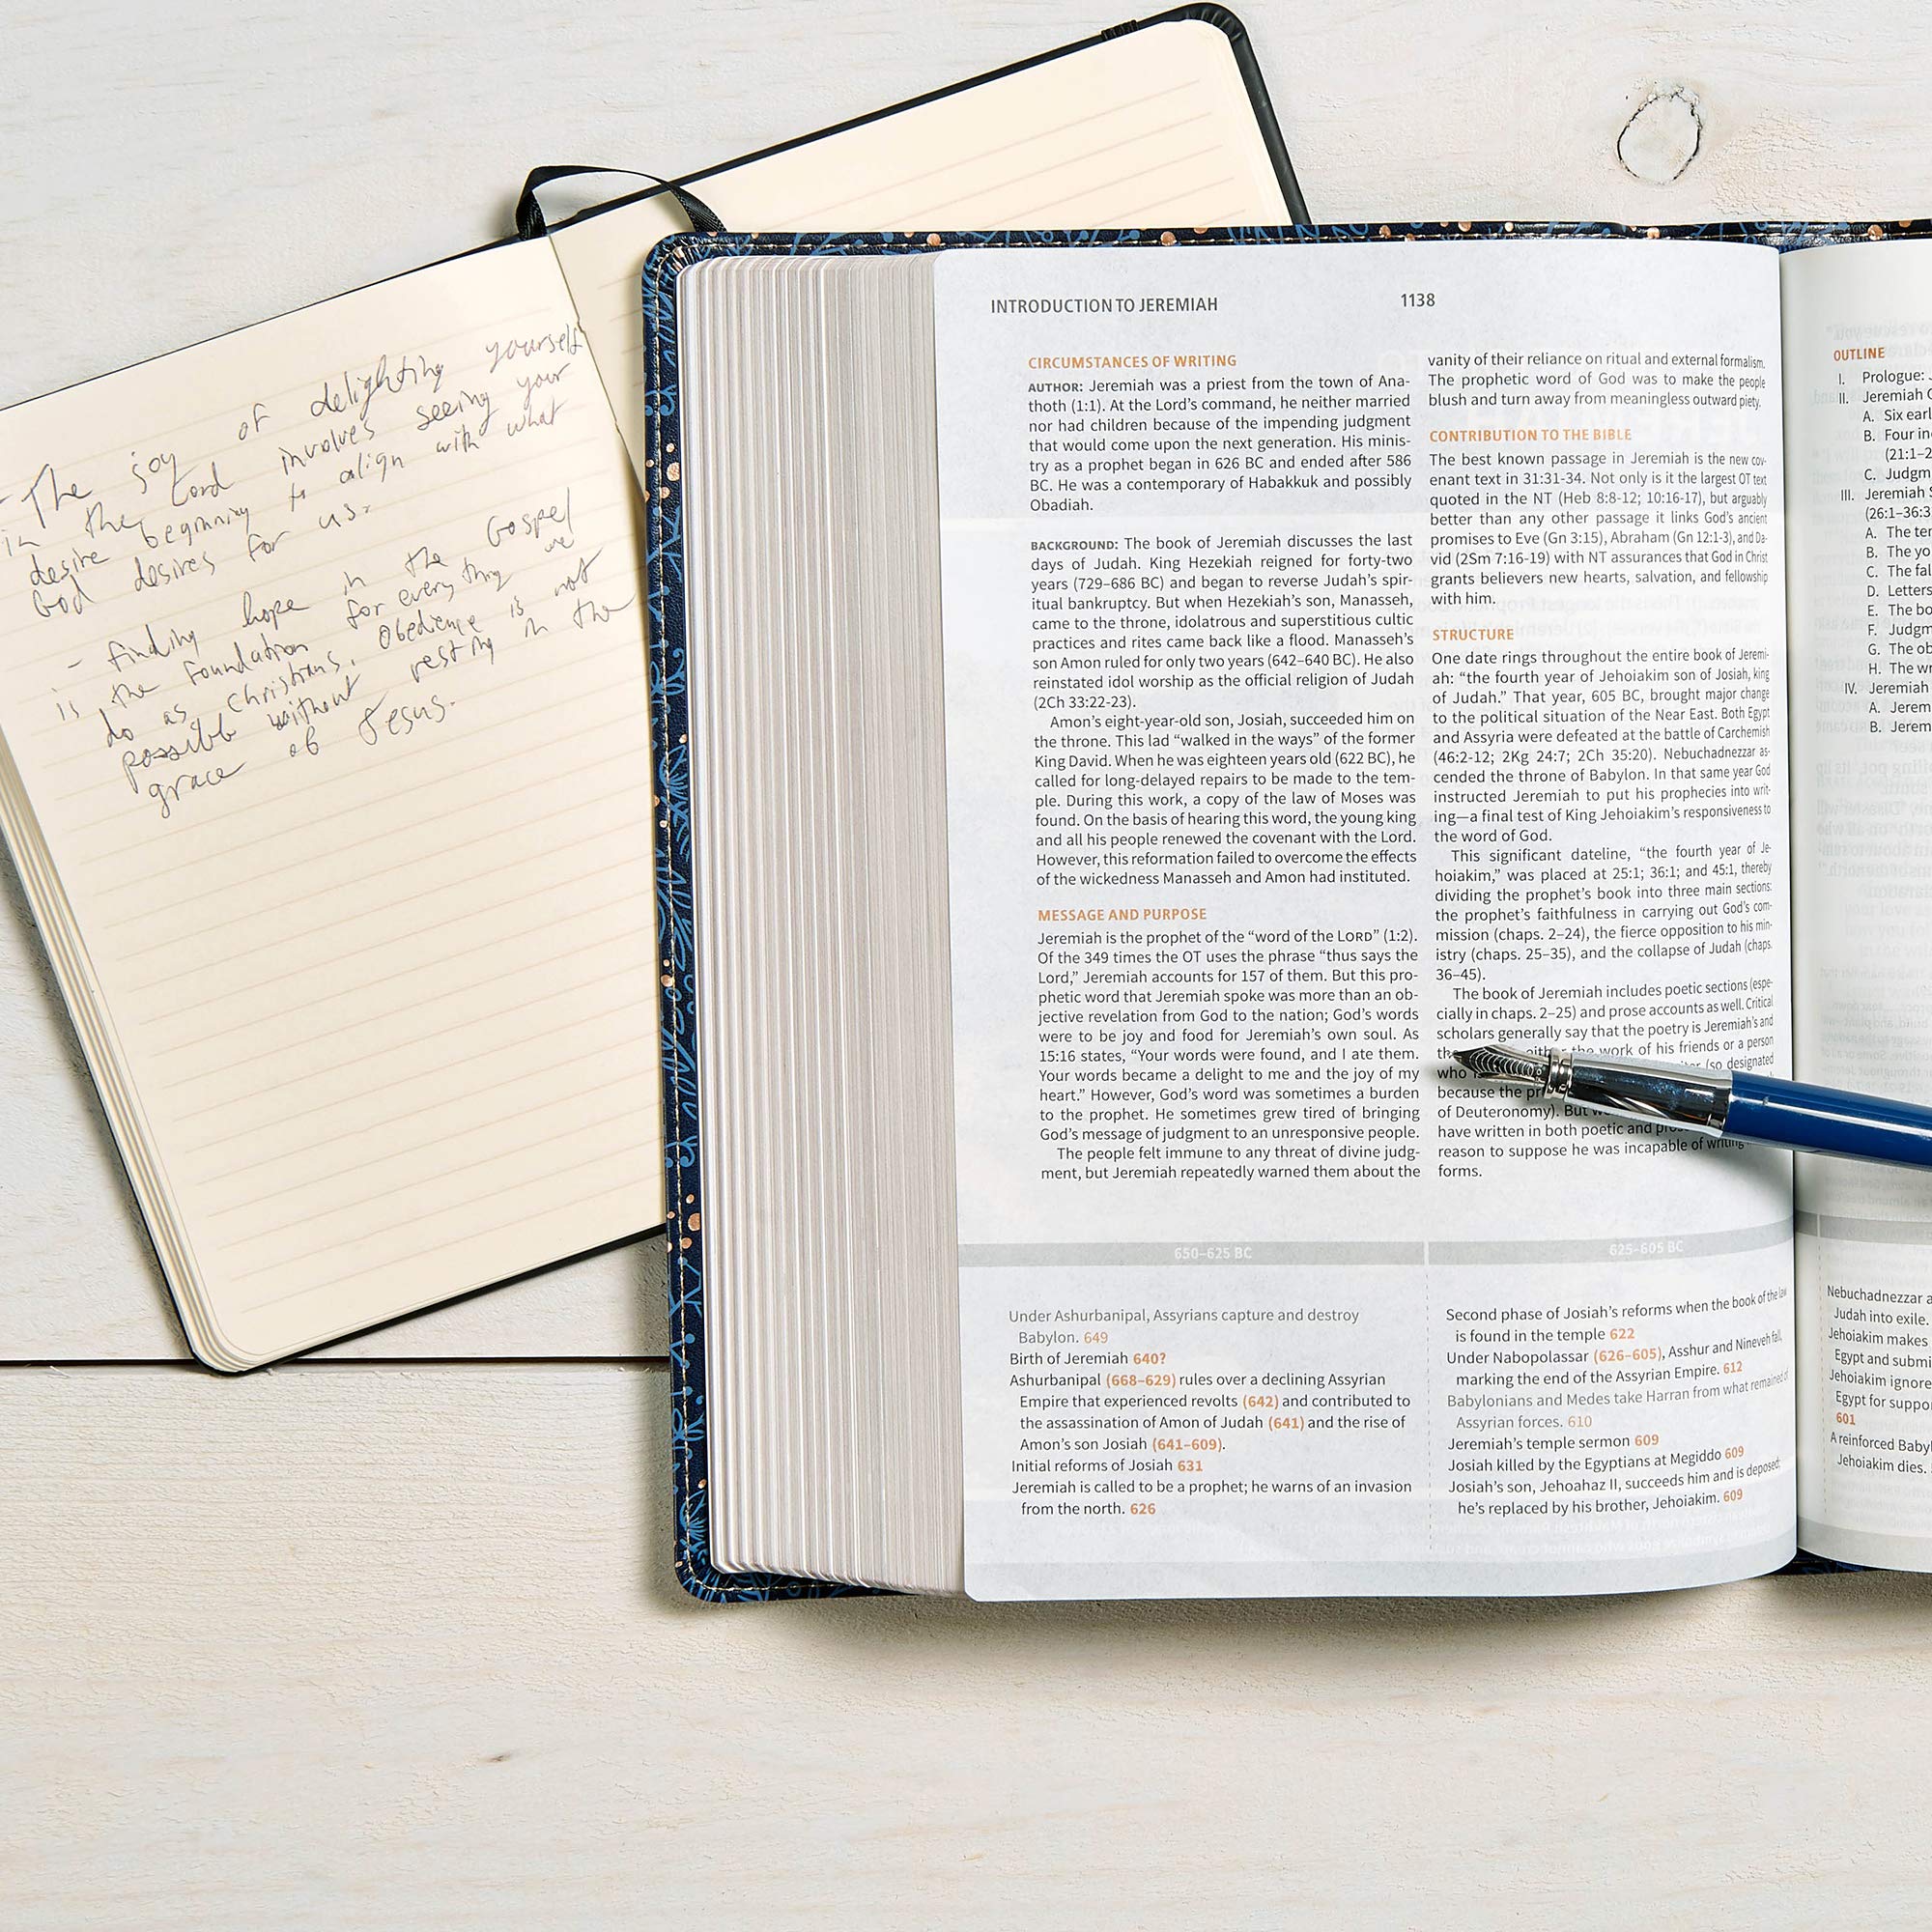 - The joy of delighting yourself
in the Lord involves seeing your
desire beginning to align with what
God desires for us.
- finding hope in the Gospel
is the foundation for everything we
do as Christians. Obedience is not
possible without resting in the
grace of Jesus.
INTRODUCTION TO JEREMIAH
1138
CIRCUMSTANCES OF WRITING
AUTHOR: Jeremiah was a priest from the town of Ana-
thoth (1:1). At the Lord's command, he neither married
nor had children because of the impending judgment
that would come upon the next generation. His minis-
try as a prophet began in 626 BC and ended after 586
BC. He was a contemporary of Habakkuk and possibly
Obadiah.
BACKGROUND: The book of Jeremiah discusses the last
days of Judah. King Hezekiah reigned for forty-two
years (729–686 BC) and began to reverse Judah's spir-
itual bankruptcy. But when Hezekiah's son, Manasseh,
came to the throne, idolatrous and superstitious cultic
practices and rites came back like a flood. Manasseh's
son Amon ruled for only two years (642–640 BC). He also
reinstated idol worship as the official religion of Judah
(2Ch 33:22-23).
Amon's eight-year-old son, Josiah, succeeded him on
the throne. This lad "walked in the ways" of the former
King David. When he was eighteen years old (622 BC), he
called for long-delayed repairs to be made to the tem-
ple. During this work, a copy of the law of Moses was
found. On the basis of hearing this word, the young king
and all his people renewed the covenant with the Lord.
However, this reformation failed to overcome the effects
of the wickedness Manasseh and Amon had instituted.
MESSAGE AND PURPOSE
Jeremiah is the prophet of the "word of the LORD" (1:2).
Of the 349 times the OT uses the phrase "thus says the
Lord," Jeremiah accounts for 157 of them. But this pro-
phetic word that Jeremiah spoke was more than an ob-
jective revelation from God to the nation; God's words
were to be joy and food for Jeremiah's own soul. As
15:16 states, "Your words were found, and I ate them.
Your words became a delight to me and the joy of my
heart." However, God's word was sometimes a burden
to the prophet. He sometimes grew tired of bringing
God's message of judgment to an unresponsive people.
The people felt immune to any threat of divine judg-
ment, but Jeremiah repeatedly warned them about the
vanity of their reliance on ritual and external formalism.
The prophetic word of God was to make the people
blush and turn away from meaningless outward piety.
CONTRIBUTION TO THE BIBLE
The best known passage in Jeremiah is the new cov-
enant text in 31:31-34. Not only is it the largest OT text
quoted in the NT (Heb 8:8-12; 10:16-17), but arguably
better than any other passage it links God's ancient
promises to Eve (Gn 3:15), Abraham (Gn 12:1-3), and Da-
vid (2Sm 7:16-19) with NT assurances that God in Christ
grants believers new hearts, salvation, and fellowship
with him.
STRUCTURE
One date rings throughout the entire book of Jeremi-
ah: "the fourth year of Jehoiakim son of Josiah, king
of Judah." That year, 605 BC, brought major change
to the political situation of the Near East. Both Egypt
and Assyria were defeated at the battle of Carchemish
(46:2-12; 2Kg 24:7; 2Ch 35:20). Nebuchadnezzar as-
cended the throne of Babylon. In that same year God
instructed Jeremiah to put his prophecies into writ-
ing—a final test of King Jehoiakim's responsiveness to
the word of God.
This significant dateline, "the fourth year of Je-
hoiakim," was placed at 25:1; 36:1; and 45:1, thereby
dividing the prophet's book into three main sections:
the prophet's faithfulness in carrying out God's com-
mission (chaps. 2–24), the fierce opposition to his min-
istry (chaps. 25–35), and the collapse of Judah (chaps.
36–45).
The book of Jeremiah includes poetic sections (espe-
cially in chaps. 2–25) and prose accounts as well. Critical
scholars generally say that the poetry is Jeremiah's and
the work of his friends or a person
who (so designated
because the
of Deuteronomy). But
have written in both poetic and
reason to suppose he was incapable of writing
forms.
650–625 BC
Under Ashurbanipal, Assyrians capture and destroy
Babylon. 649
Birth of Jeremiah 640?
Ashurbanipal (668–629) rules over a declining Assyrian
Empire that experienced revolts (642) and contributed to
the assassination of Amon of Judah (641) and the rise of
Amon's son Josiah (641–609).
Initial reforms of Josiah 631
Jeremiah is called to be a prophet; he warns of an invasion
from the north. 626
625–605 BC
Second phase of Josiah's reforms when the book of the law
is found in the temple 622
Under Nabopolassar (626–605), Asshur and Nineveh fall,
marking the end of the Assyrian Empire. 612
Babylonians and Medes take Harran from what remained of
Assyrian forces. 610
Jeremiah's temple sermon 609
Josiah killed by the Egyptians at Megiddo 609
Josiah's son, Jehoahaz II, succeeds him and is deposed;
he's replaced by his brother, Jehoiakim. 609
OUTLINE
I. Prologue:
II. Jeremiah
A. Six
B. Four
(21:1–
C.
III. Jeremiah
(26:1–36:3
A. The
B. The
C. The
D. Letters
E. The
F.
G. The
H. The
IV. Jeremiah
A.
B.
Nebuchadnezzar
Judah into exile.
Jehoiakim makes
Egypt and
Jehoiakim
Egypt for
601
A reinforced
Jehoiakim dies.